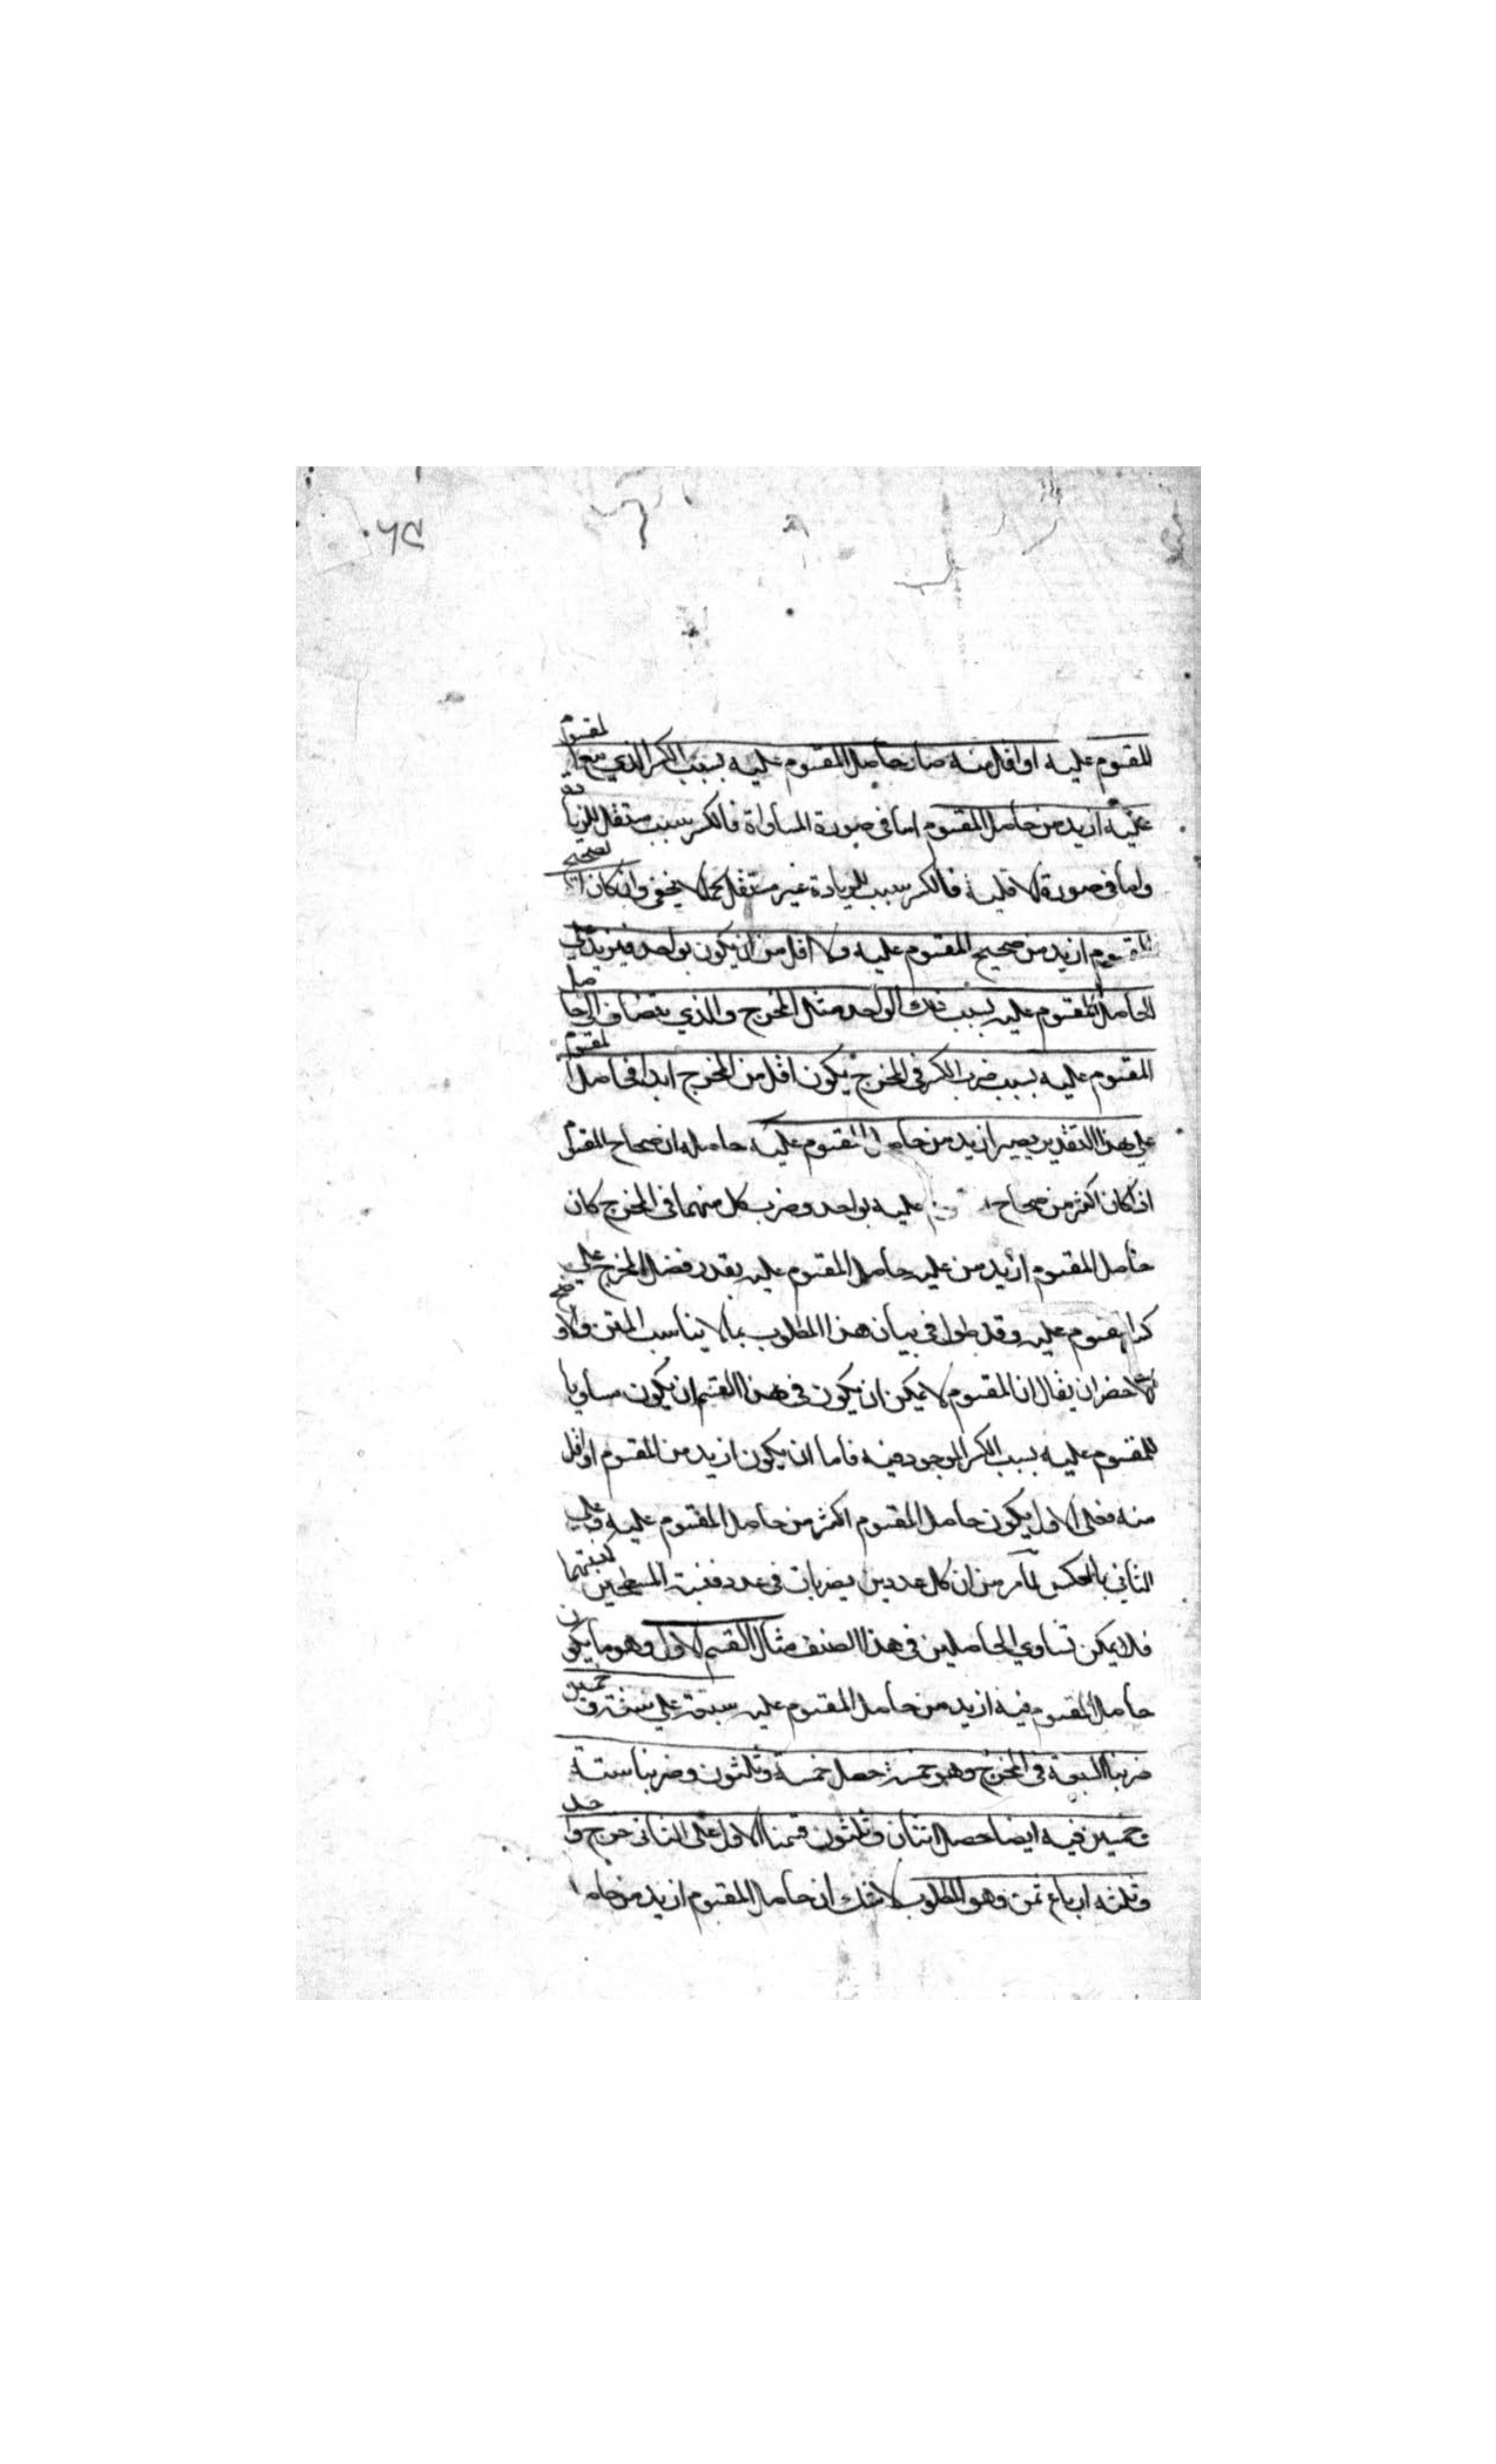 ٦٩
للمقسوم عليه او اقل منه صار حاصل المقسوم عليه بسبب الكسر الذي مع المقسوم
عليه ازيد من حاصل المقسوم اما في صورة المساواة فالكسر سبب مستقل للزيادة
واما في صورة الاقلية فالكسر سبب للزيادة غير مستقل كما لا يخفى وان كان الصحيح
المقسوم ازيد من صحيح المقسوم عليه ولا اقل من ان يكون بواحد فيزيد على
الحاصل المقسوم عليه بسبب ذلك الواحد مثل المخرج والذي ينضاف الى حاصل
المقسوم عليه بسبب ضرب الكسر في المخرج يكون اقل من المخرج ابدا فحاصل المقسوم
على هذا التقدير يصير ازيد من حاصل المقسوم عليه حاصله ان صحاح المقسوم
اذا كان اكثر من صحاح عليه بواحد وضرب كل منهما في المخرج كان
حاصل المقسوم ازيد من عليه حاصل المقسوم عليه بقدر فضل المخرج على
كسر المقسوم عليه وقد طول في بيان هذا المطلوب بما لا يناسب المتن والاوضح
الاخضر ان يقال ان المقسوم لا يمكن ان يكون في هذا القسم ان يكون مساويا
للمقسوم عليه بسبب الكسر الموجود فيه فاما ان يكون ازيد من المقسوم او اقل
منه فعلى الاول يكون حاصل المقسوم اكثر من حاصل المقسوم عليه وعلى
الثاني بالعكس لما مر من ان كل عددين يضربان في عدد فنسبة المسطحين كنسبتهما
فلا يمكن تساوي الحاصلين في هذا الصنف مثال القسم الاول وهو ما يكون
حاصل المقسوم فيه ازيد من حاصل المقسوم عليه سبعة على ستة وخمسين
ضربنا السبعة في المخرج وهو خمسة حصل خمسة وثلثون وضربنا ستة
وخمسين فيه ايضا حصل اثنان وثلثون قسمنا الاول على الثاني خرج واحد
وثلثة ارباع ثمن وهو المطلوب لا شك ان حاصل المقسوم ازيد من